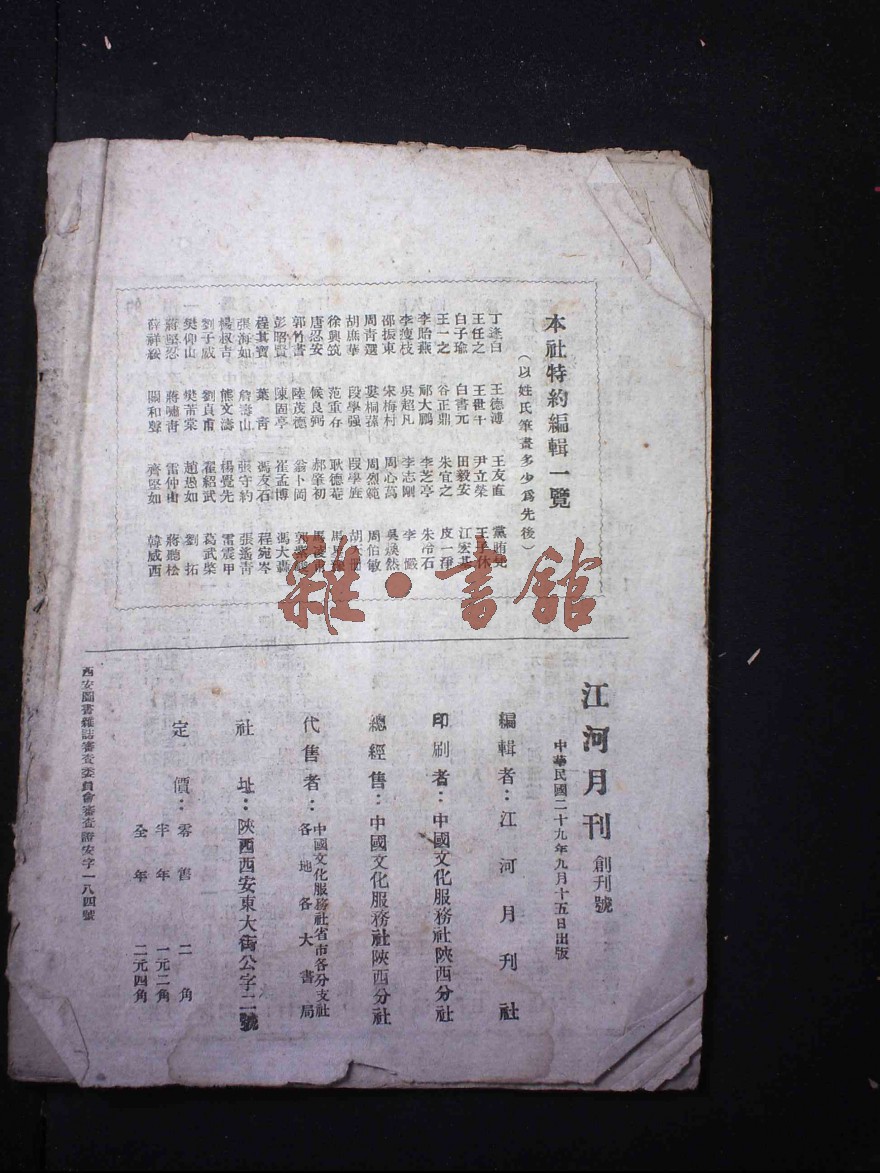 本社特約編輯一覽
(以姓氏筆畫多少爲先後)
丁逢白 王德溥 王友直
王任之 王世千 尹立榮
白子瑜 白書元 田毅安 江宏基
王一之 谷正鼎 朱宜之 皮一凈
李貽燕 鄺大鵬 李芝亭 朱冷石
李瘦枝 吳超凡 李志剛 李
邵振東 宋梅村 周心萬 吳煥然
周青選 婁桐蓀 周烈範 周伯敏
胡庶華 段學强 段學旌
徐興筑 范重存 耿德菴
唐忍安 候良弼 郝肇初
郭竹書 陸茂德 翁卜岡
彭昭賢 陳固亭 崔孟博 馮大轟
程其寶 葉青 馮友石 程宛岑
張海如 詹壽山 張守約 張遙青
楊叔吉 熊文濤 楊覺先 雷震甲
劉子威 劉貞甫 翟紹武 葛武棨
樊仰山 樊芾棠 趙愚如 劉拓
蔣堅忍 蔣嘯青 雷仲山 蔣聽松
薛祥綏 關和聲 齊堅如 韓威西
江河月刊 創刊號
中華民國二十九年九月十五日出版
編輯者：江河月刊社
印刷者：中國文化服務社陝西分社
總經售：中國文化服務社陝西分社
代售者：中國文化服務社省市各分支社
各地各大書局
社址：陝西西安東大街公字二號
定價：零售 二角
半年 一元二角
全年 二元四角
西安圖書雜誌審查委員會審查證安字一八四號
雜·書館